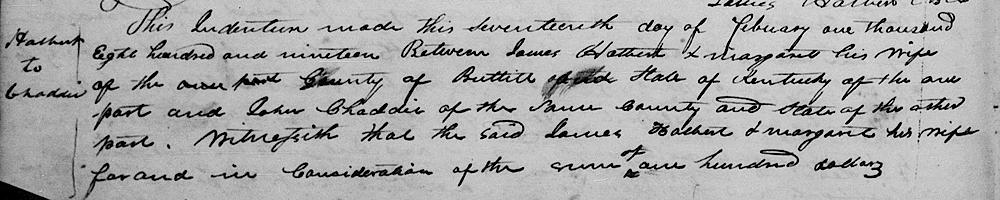 This Indenture made this seventeenth day of february one thousand
Eight hundred and nineteen Between James Hathert & margaret his wife
Hathert
to
Chaddic
of the County of State of Kentucky of the one
part and John Chaddic of the Same County and State of the other
part. Witnesseth that the said James Hathert & margaret his wife
for and in Consideration of the sum of one hundred dollars